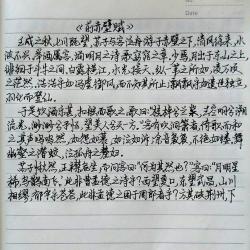 《前赤壁赋》
壬戌之秋，七月既望，苏子与客泛舟游于赤壁之下。清风徐来，水
波不兴。举酒属客，诵明月之诗，歌窈窕之章。少焉，月出于东山之上，
徘徊于斗牛之间。白露横江，水光接天。纵一苇之所如，凌万顷
之茫然。浩浩乎如冯虚御风，而不知其所止；飘飘乎如遗世独立，
羽化而登仙。
于是饮酒乐甚，扣舷而歌之。歌曰："桂棹兮兰桨，击空明兮溯
流光。渺渺兮予怀，望美人兮天一方。"客有吹洞箫者，倚歌而和
之。其声呜呜然，如怨如慕，如泣如诉，余音袅袅，不绝如缕。舞
幽壑之潜蛟，泣孤舟之嫠妇。
苏子愀然，正襟危坐，而问客曰："何为其然也？"客曰："月明星
稀，乌鹊南飞，此非曹孟德之诗乎？西望夏口，东望武昌，山川
相缪，郁乎苍苍，此非孟德之困于周郎者乎？方其破荆州，下